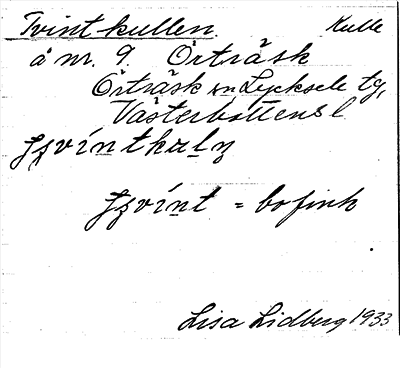 Tvintkullen. Kulle
å nr. 9. Örträsk
Örträsk sn Lycksele tg,
Västerbottens l
= bofink
Lisa Lidberg 1933